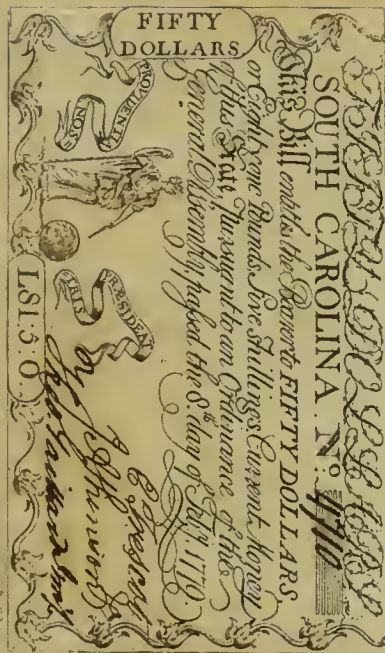 FIFTY
DOLLARS
SOUTH CAROLINA. Nº 4710
This Bill entitles the Bearer to FIFTY DOLLARS
or Eighty one Pounds, five Shillings Current Money
of this State, Pursuant to an Ordinance of the
General Assembly, passed the 8th day of Feby 1779.
TRIS PRÆSIDEN
L81:5:0.